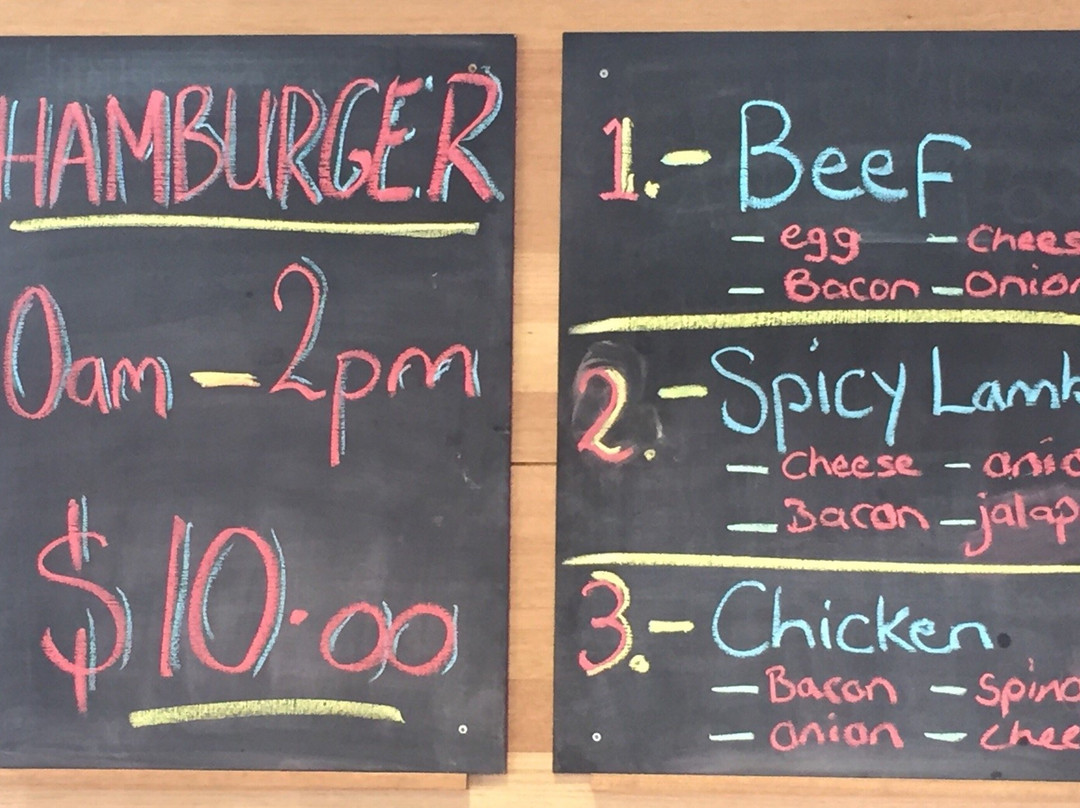 HAMBURGER
0am - 2pm
$10.00
1. - Beef
- egg - Chees
- Bacon - Onion
2. - Spicy Lamb
- Cheese - onio
- Bacon - jalap
3. - Chicken
- Bacon - Spina
- onion - chee